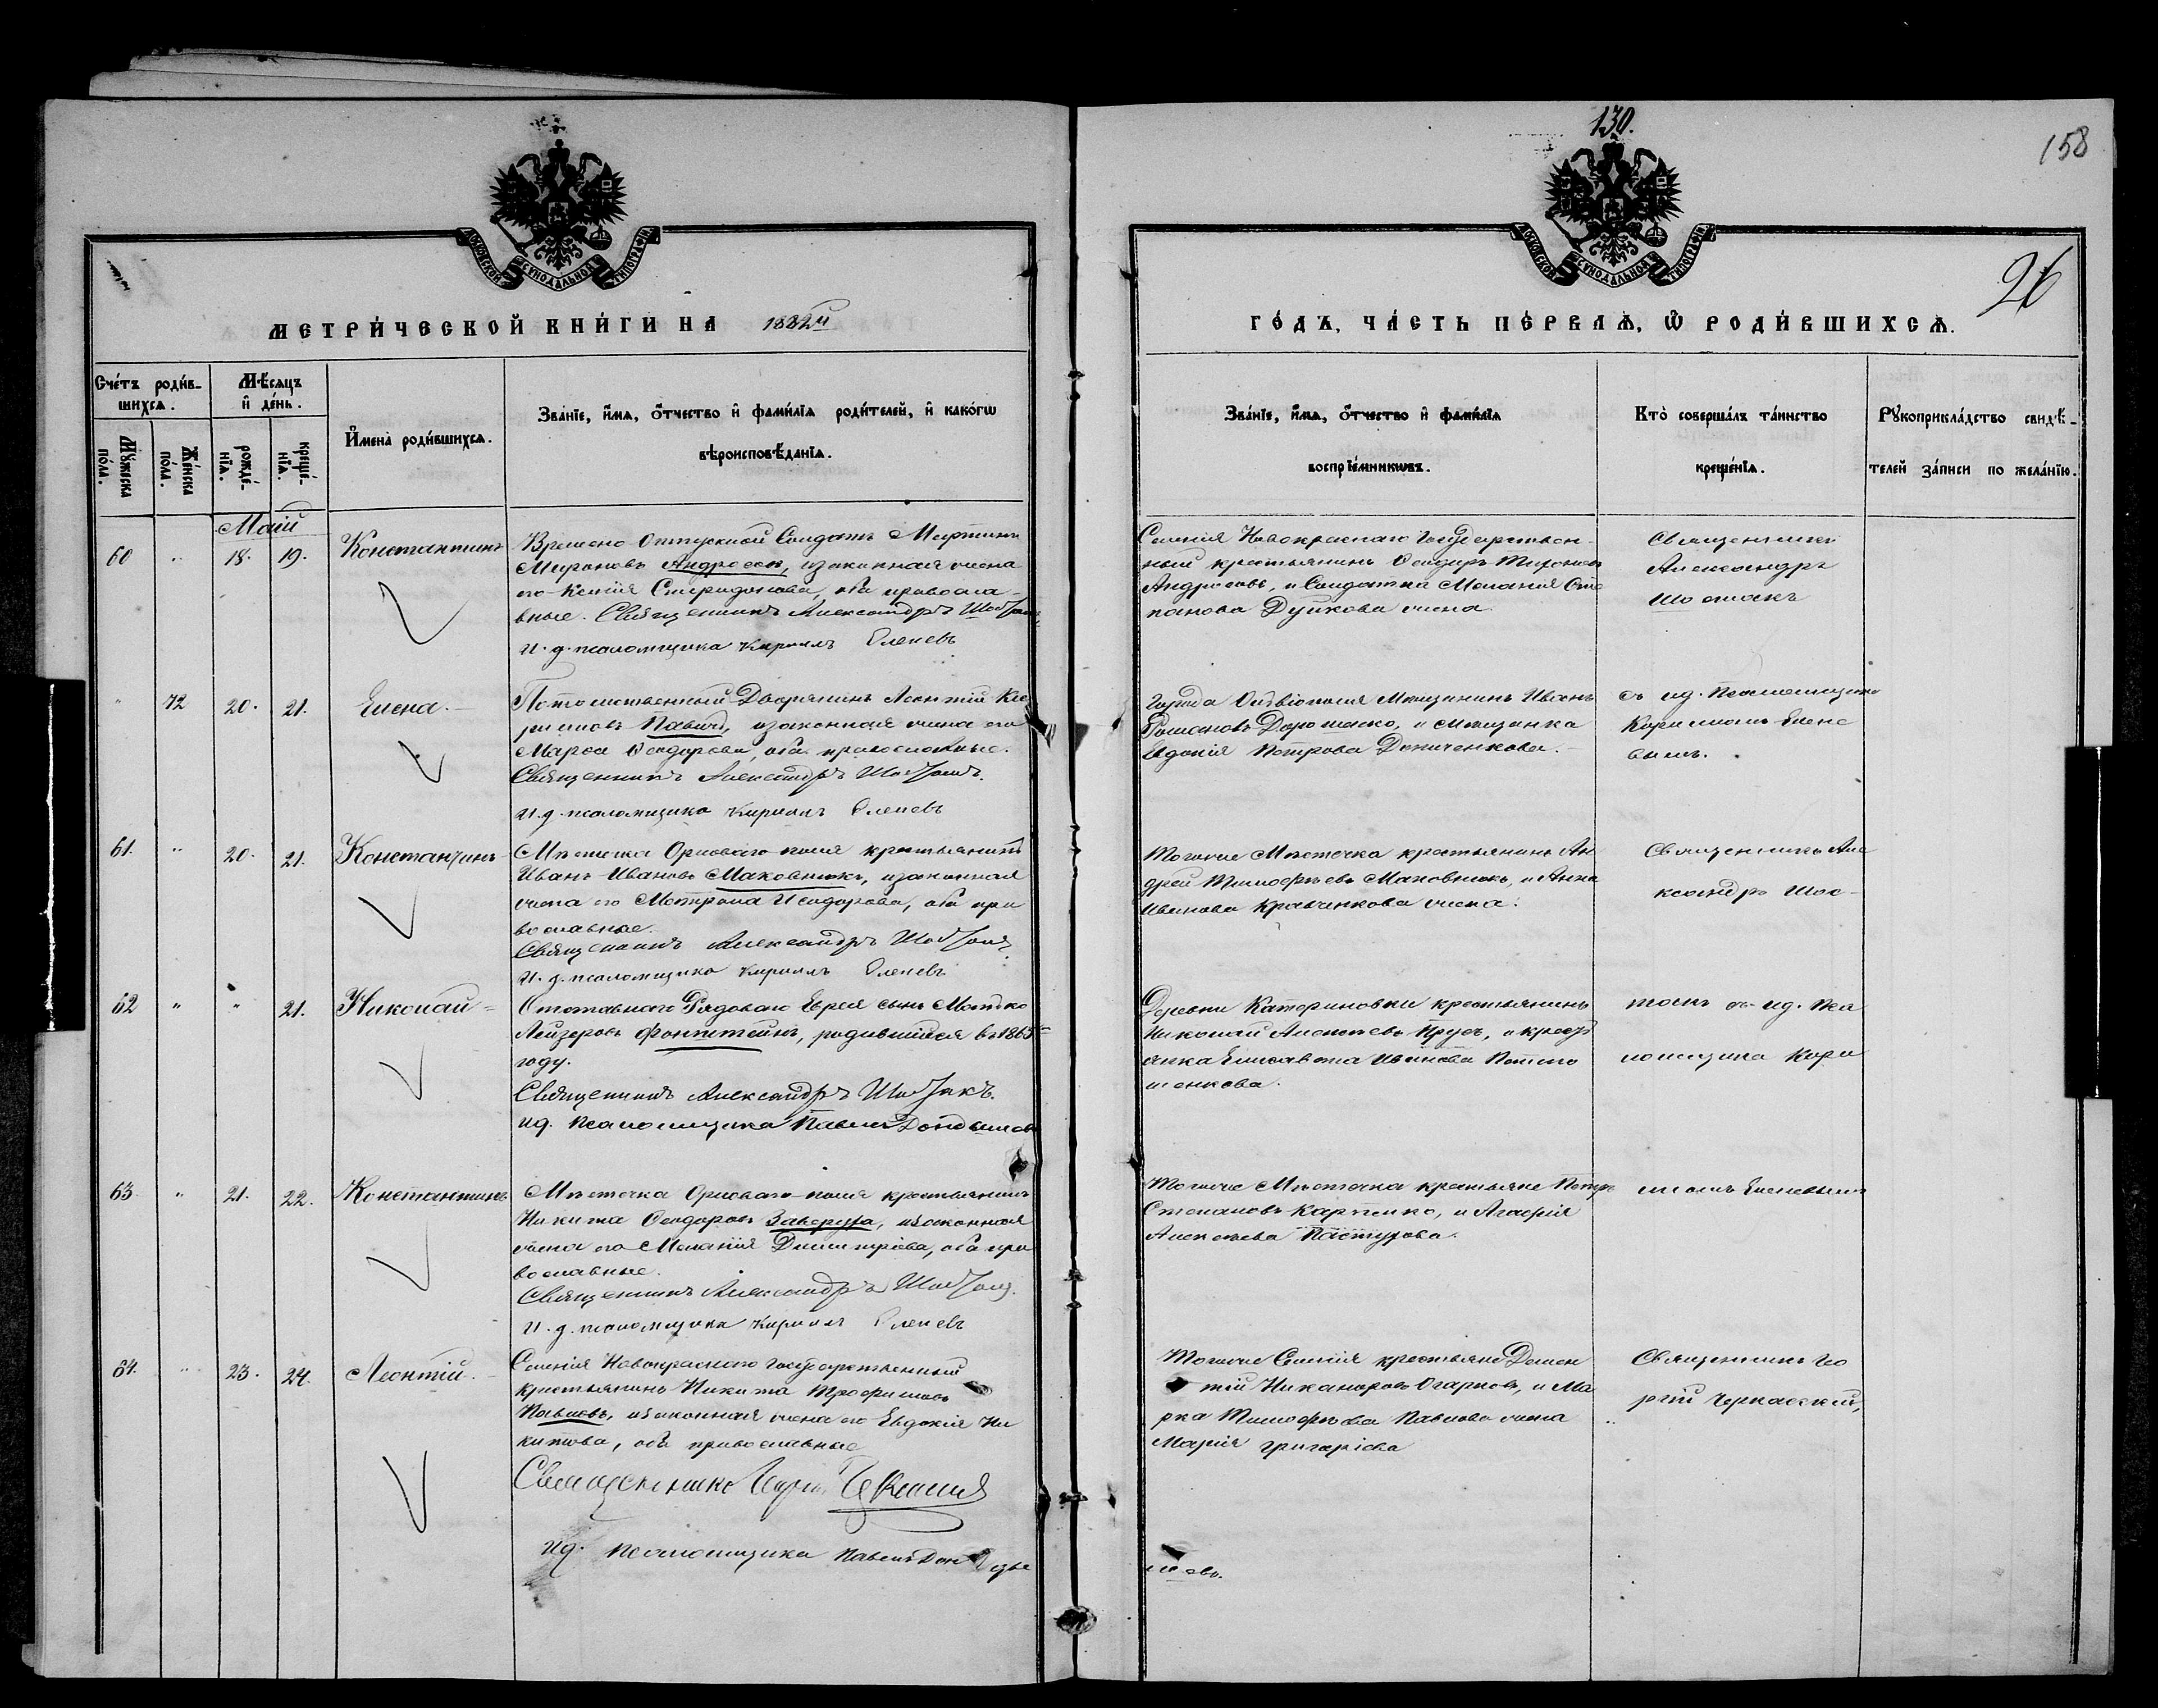 130.
158
26
МОСКОВСКОЙ СѴНОДАЛЬНОЙ ТИПОГРАФІИ
МОСКОВСКОЙ СѴНОДАЛЬНОЙ ТИПОГРАФІИ
МЕТРИ́ЧЕСКОЙ КНИ́ГИ НА 1882й
ГО́ДЪ, ЧА́СТЬ ПЕ́РВАѦ, Ѿ РОДИ́ВШИХСѦ.
Сче́тъ роди́в-
шихсѧ.
Мѣ́сѧцъ
и҆ де́нь.
Мꙋ́жеска
по́ла.
Же́нска
по́ла.
рожде́-
нїѧ.
креще́-
нїѧ.
И҆мена̀ роди́вшихсѧ.
Зва́нїе, и҆́мѧ, ѻ҆́тчество и҆ фами́лїѧ роди́телей, и҆ како́гѡ
вѣроисповѣ́данїѧ.
Зва́нїе, и҆́мѧ, ѻ҆́тчество и҆ фами́лїѧ
воспрїе́мникѡвъ.
Кто̀ соверша́лъ та́инство
креще́нїѧ.
Рꙋкоприкла́дство свидѣ́-
телей за́писи по жела́нїю.
Маій
60 " 18. 19. Константинъ
Времено Отпускной Солдатъ Мартинъ
Мироновъ Андросов, и законная жена
его Ксенія Спиридонова, оба правосла-
вные. Священникъ Александръ Шостакъ
и. д. псаломщика Кириллъ Еленевъ
Селенія Новокраснаго Государствен-
ный крестьянинъ Ѳеодоръ Мироновъ
Андросовъ, и Солдатка Меланія Сте
панова Дуйкова жена
Священникъ
Александръ
Шостакъ
" 72 20. 21. Елена. -
Потомственный Дворянинъ Леонтій
Павич, и законная жена его
Марѳа Ѳеодорова, оба православные.
Священникъ Александръ Шостакъ.
и. д. псаломщика Кириллъ Еленевъ
Города Овидіополя Мещанинъ Иванъ
Романовъ и мещанка
Евдокія Петрова
съ и д. Псаломщика
Кирилломъ Елене
вымъ.
61. " 20. 21. Константинъ
Мѣстечка Орловаго-поля крестьянинъ
Иванъ Ивановъ Маховникъ, и законная
жена его Матрона Ѳеодорова, оба пра
вославные.
Священникъ Александръ Шостакъ
и. д. псаломщика Кириллъ Еленевъ
Тогоже Мѣстечка крестьянинъ Ан
дрей Тимоѳѣевъ Маховникъ, и Анна
Иванова Кравченкова жена.
Священникъ Але
ксандръ Шос-
62 " " 21. Николай =
Отставнаго Рядоваго Еврея сынъ
Лейзеровъ родившійся въ 1865
году.
Священникъ Александръ Шостакъ.
и д. псаломщика Павелъ
Деревни Катериновки крестьянинъ
Николай Алексѣевъ Прусъ, и крест
янка Елисавета Иванова
шенкова.
такъ съ и д. пса
ломщика Кири
63. " 21. 22. Константинъ
Мѣстечка Орловаго-поля крестьянинъ
Никита Ѳеодоровъ Заверуха, и законная
жена его Меланія Димитріева, оба пра
вославные.
Священникъ Александръ Шостакъ.
и. д. псаломщика Кириллъ Еленевъ
Тогоже Мѣстечка крестьяне Петръ
Степановъ Карпенко, и Агаѳія
Алексѣева Пастухова.
лломъ Еленевымъ
64. " 23. 24. Леонтій. -
Селенія Новокраснаго Государственный
крестьянинъ Никита Трофимовъ
Павловъ, и законная жена его Евдокія Ни
китова, оба православные
Священникъ
и д. псаломщика Павелъ
Тогоже Селенія крестьяне Демен
тій Никаноровъ Огарковъ, и Ма
рка Тимоѳѣева Павлова жена
Марія Григоріева
Священникъ Гео
ргій Чернавскій,
ловъ.